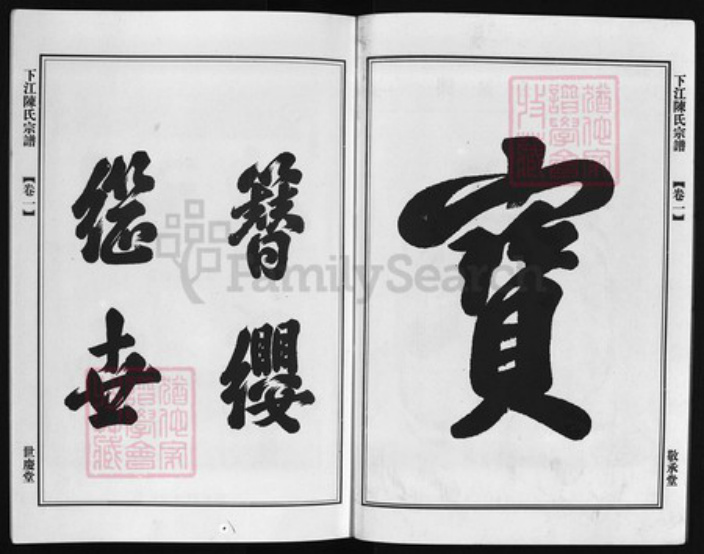 下江陳氏宗譜
【卷一】
敬承堂
寶
簪纓
继世
下江陳氏宗譜
【卷一】
世慶堂
FamilySearch